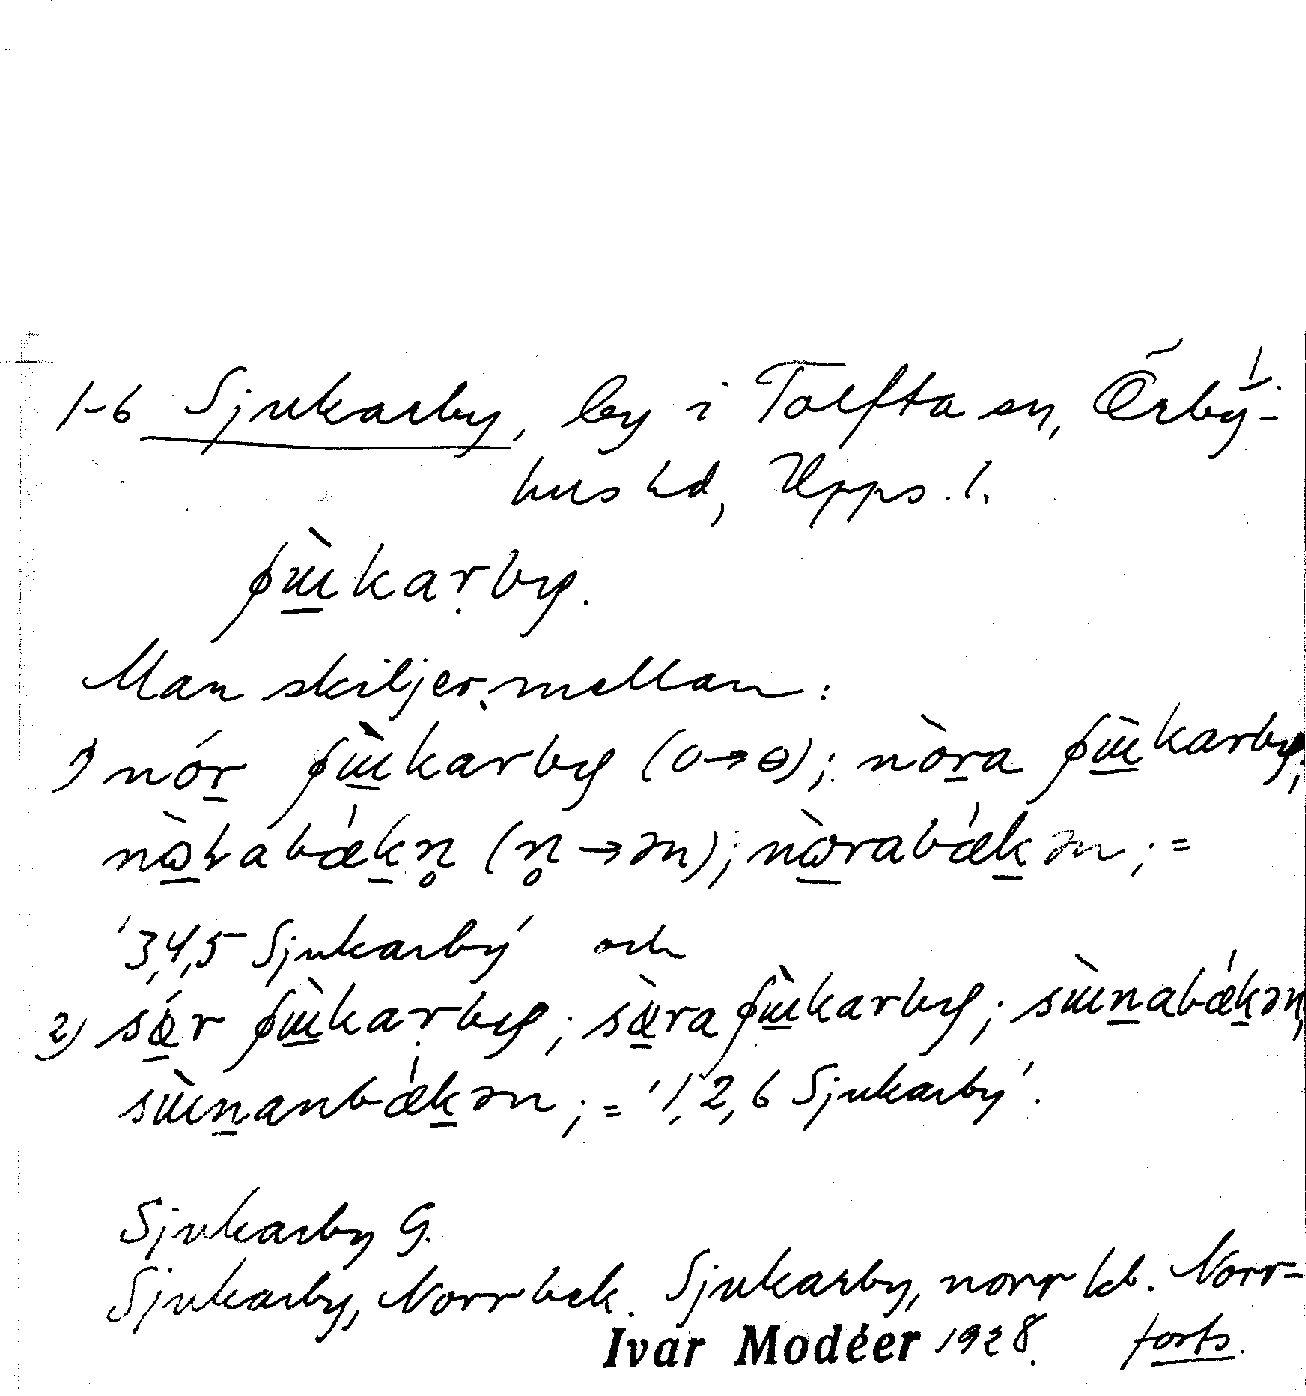 1-6 Sjukarby, by i Tolfta sn, Örby-
hus hd, Upps. l.
ʃɯ̀karby.
Man skiljer mellan:
1) nór ʃɯ̀karby (o→ɵ); nòra ʃɯ̀karby;
nꞷ̀rabækn̥ (n̥→ən); nꞷ̀rabækən; =
'3,4,5 Sjukarby' och
2) sǽr ʃɯ̀karby; sæ̀ra ʃɯ̀karby; sɯ̀nabækən,
sɯ̀nanbækən; = '1,2,6 Sjukarby'.
Sjukarby G.
Sjukarby, Norrbek. Sjukarby, norr kb. Norr-
Ivar Modéer 1928. forts.